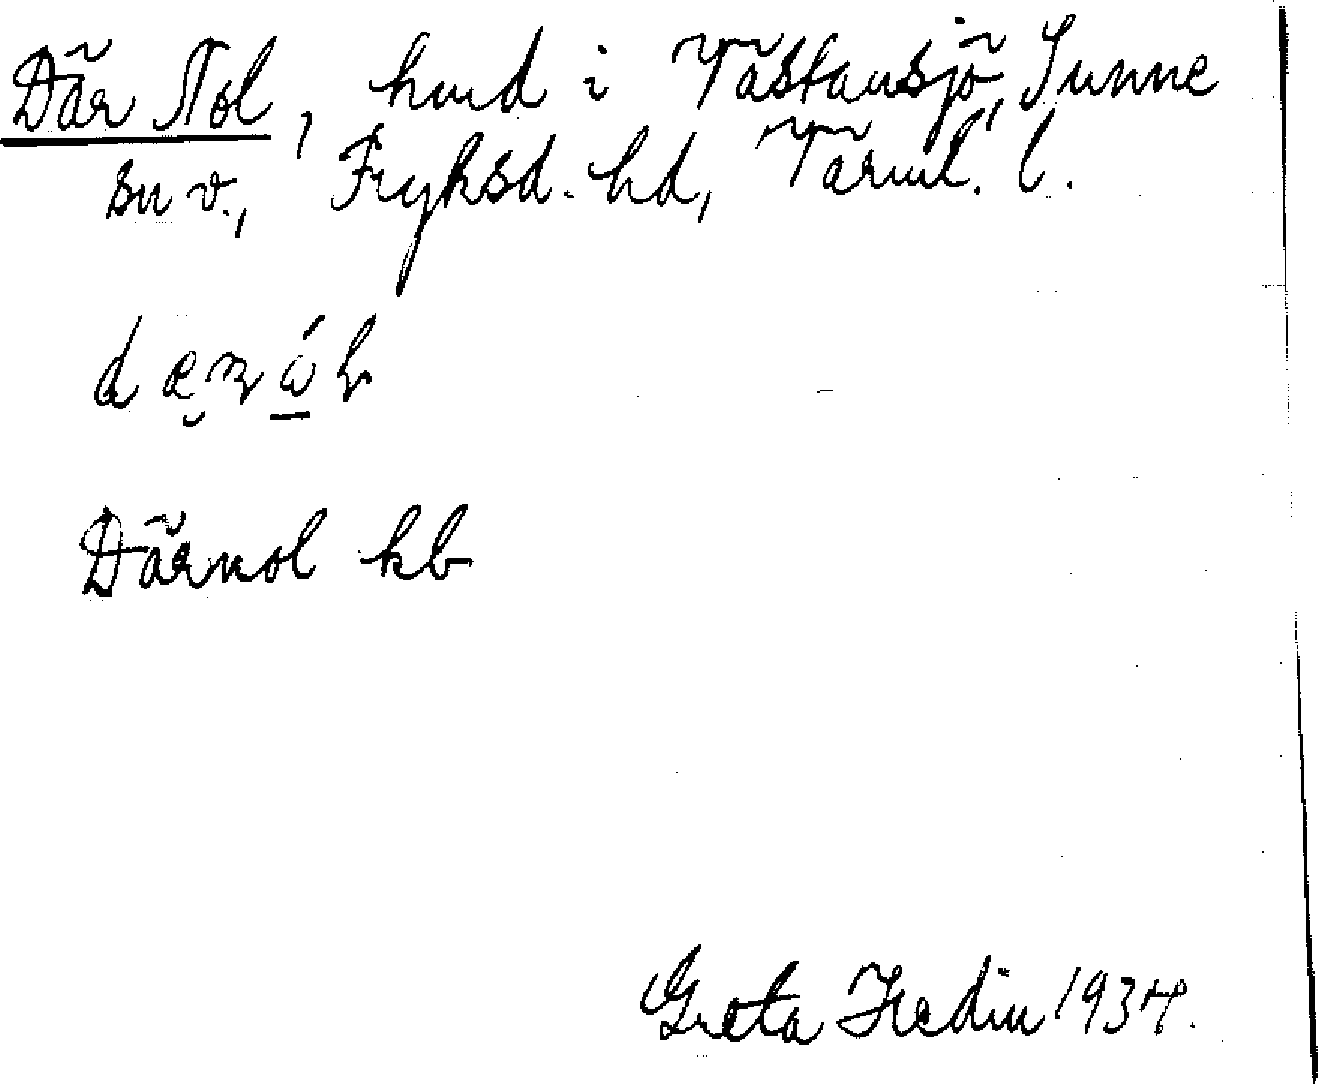 Där Nol, hmd i Västansjö, Sunne
sn v., Fryksd. hd, Värml. l.
Därnol kb
Greta Hedin 1934.